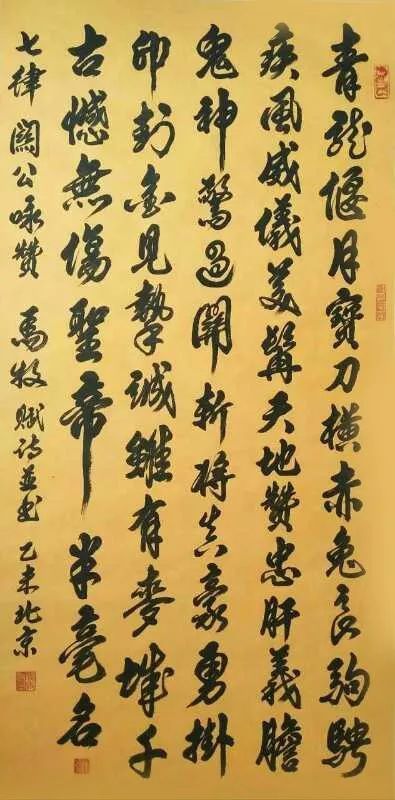 青龙偃月宝刀横赤兔良驹騁
疾風威儀美髯天地贊忠肝義膽
鬼神驚過關斬將真豪勇掛
印封金見摯誠雖有麥城千
古憾無傷聖帝半毫名
七律關公咏赞 馬牧賦诗並书 乙未北京